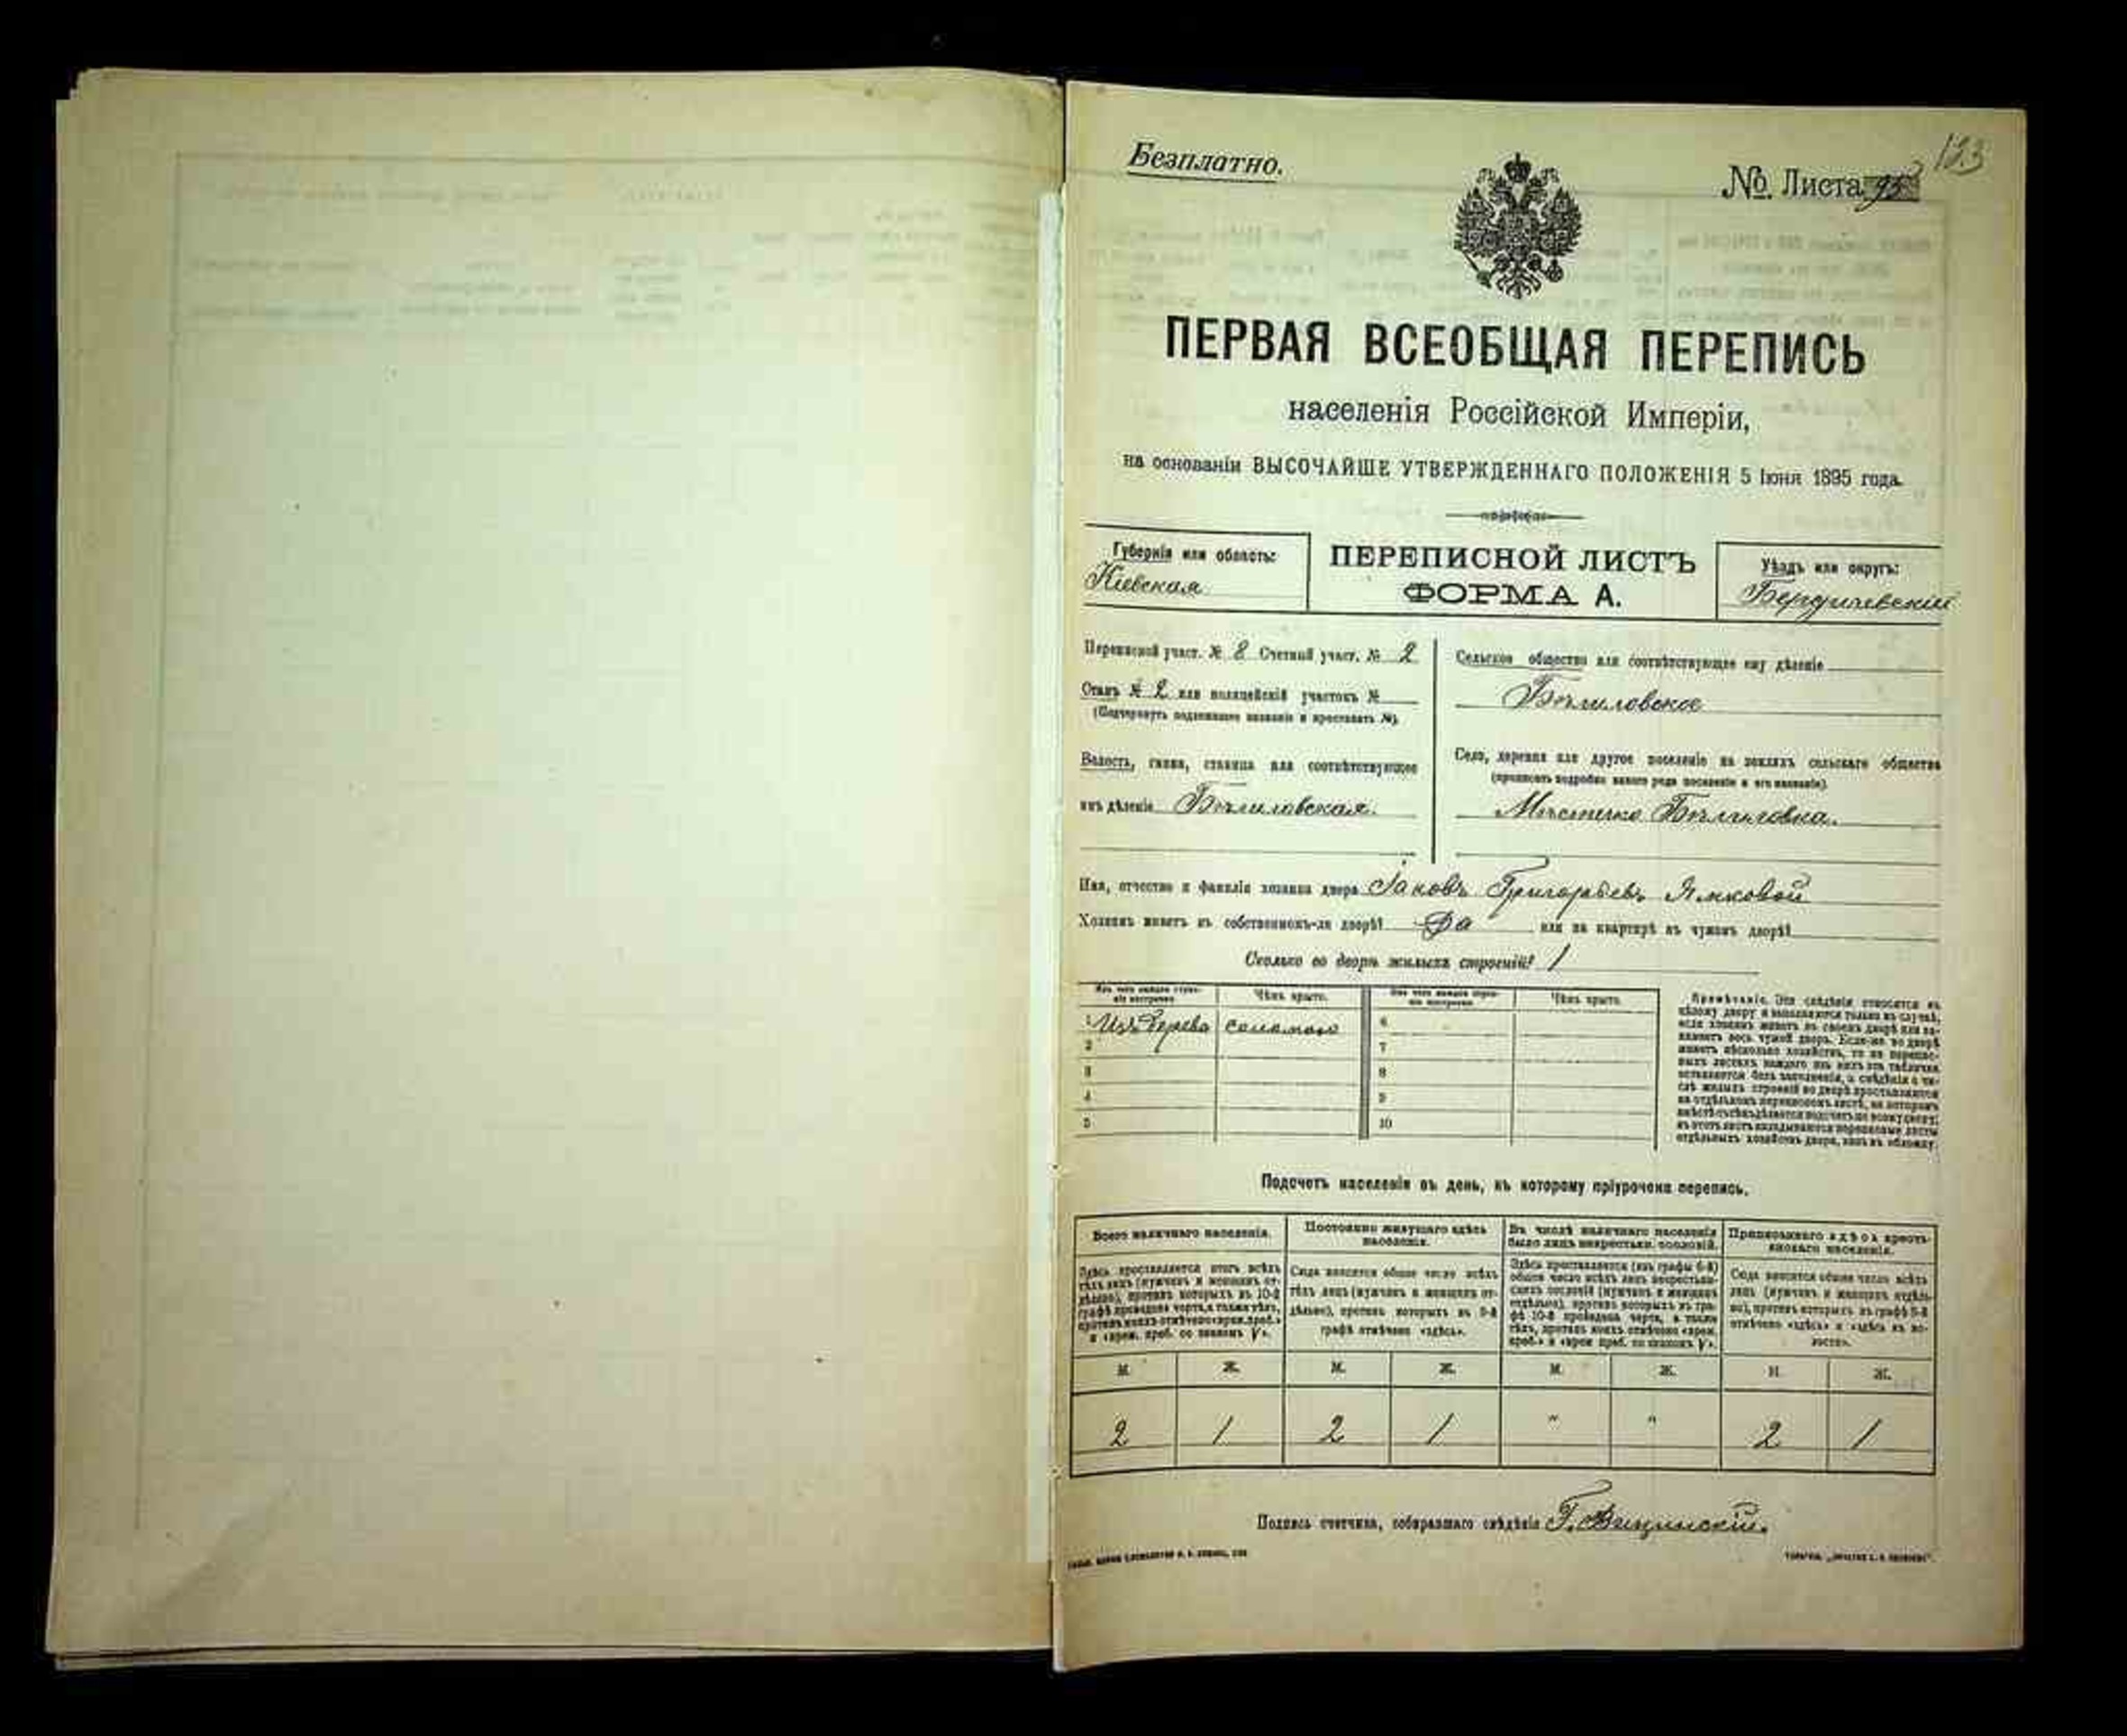 Безплатно.
123
№ Листа 95
ПЕРВАЯ ВСЕОБЩАЯ ПЕРЕПИСЬ
населенія Россійской Имперіи,
на основаніи ВЫСОЧАЙШЕ УТВЕРЖДЕННАГО ПОЛОЖЕНІЯ 5 Іюня 1895 года.
Губернія или область:
Кіевская
ПЕРЕПИСНОЙ ЛИСТЪ
ФОРМА А.
Уѣздъ или округъ:
Бердичевскій
Переписной участ. № 8 Счетный участ. № 2
Станъ № 2 или полицейскій участокъ №
(Подчеркнуть подлежащее названіе и проставить №).
Волость, гмина, станица или соотвѣтствующее
имъ дѣленіе Бѣлиловская.
Сельское общество или соотвѣтствующее ему дѣленіе
Бѣлиловское
Село, деревня или другое поселеніе на земляхъ сельскаго общества
(прописать подробно какого рода поселеніе и его названіе).
Мѣстечко Бѣлиловка.
Имя, отчество и фамилія хозяина двора Іаковъ Григорьевъ Ямковой
Хозяинъ живетъ въ собственномъ-ли дворѣ? Да или на квартирѣ въ чужомъ дворѣ?
Сколько во дворѣ жилыхъ строеній? 1
Изъ чего каждое строеніе построено. Чѣмъ крыто. Изъ чего каждое строеніе построено. Чѣмъ крыто.
1 Изъ дерева соломою 6
2 7
3 8
4 9
5 10
Примѣчаніе. Эти свѣдѣнія относятся къ
цѣлому двору и заполняются только въ случаѣ,
если хозяинъ живетъ въ своемъ дворѣ или занимаетъ
весь чужой дворъ. Если-же во дворѣ
живетъ нѣсколько хозяйствъ, то на переписныхъ
листахъ каждаго изъ нихъ эта табличка
оставляется безъ заполненія, а свѣдѣнія о числѣ
жилыхъ строеній во дворѣ проставляются
на отдѣльномъ переписномъ листѣ, на которомъ
вмѣстѣ съ тѣмъ дѣлается подсчетъ по всему двору;
въ этотъ листъ вкладываются переписные листы
отдѣльныхъ хозяйствъ двора, какъ въ обложку.
Подсчетъ населенія въ день, къ которому пріурочена перепись.
Всего наличнаго населенія.
Здѣсь проставляется итогъ всѣхъ
тѣхъ лицъ (мужчинъ и женщинъ отдѣльно),
противъ которыхъ въ 10-й
графѣ проведена черта, а также тѣхъ,
противъ коихъ отмѣчено «врем. преб.»
и «врем. преб. со знакомъ V».
Постоянно живущаго здѣсь
населенія.
Сюда вносится общее число всѣхъ
тѣхъ лицъ (мужчинъ и женщинъ отдѣльно),
противъ которыхъ въ 9-й
графѣ отмѣчено «здѣсь».
Въ числѣ наличнаго населенія
было лицъ некрестьян. сословій.
Здѣсь проставляется (изъ графы 6-й)
общее число всѣхъ лицъ некрестьянскихъ
сословій (мужчинъ и женщинъ
отдѣльно), противъ которыхъ въ графѣ
10-й проведена черта, а также
тѣхъ, противъ коихъ отмѣчено «врем.
преб.» и «врем. преб. со знакомъ V».
Приписаннаго здѣсь крестьянскаго
населенія.
Сюда вносится общее число всѣхъ
лицъ (мужчинъ и женщинъ отдѣльно),
противъ которыхъ въ графѣ 8-й
отмѣчено «здѣсь» и «здѣсь въ волости».
М. Ж. М. Ж. М. Ж. М. Ж.
2 1 2 1 " " 2 1
Подпись счетчика, собиравшаго свѣдѣнія Г. Вищинскій.